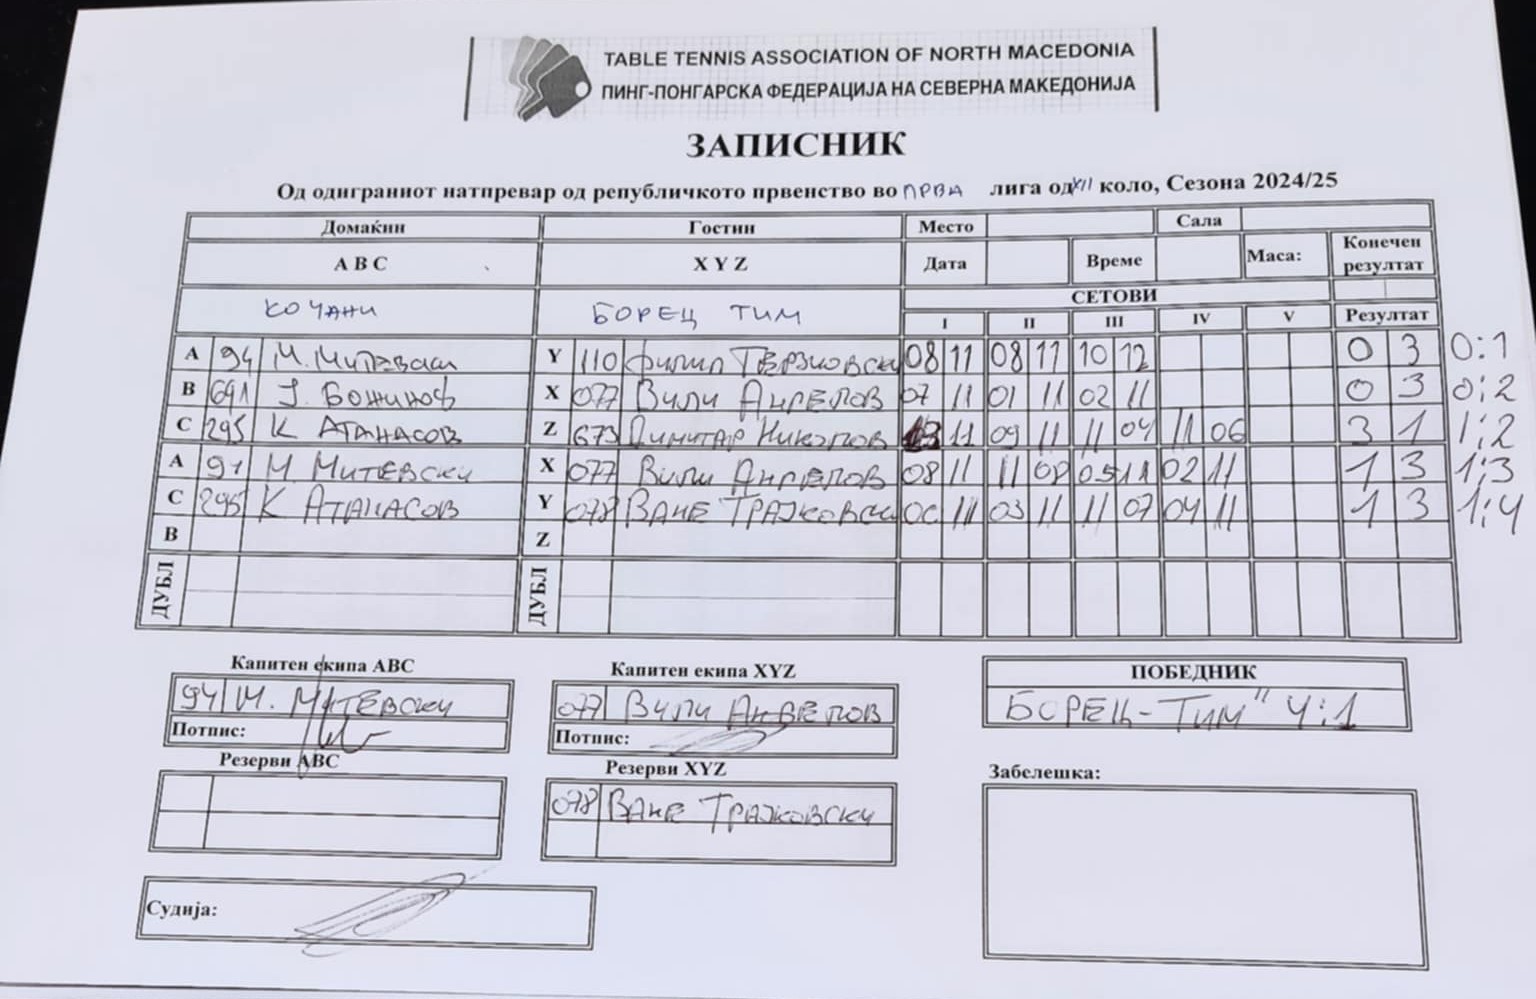 TABLE TENNIS ASSOCIATION OF NORTH MACEDONIA
ПИНГ-ПОНГАРСКА ФЕДЕРАЦИЈА НА СЕВЕРНА МАКЕДОНИЈА
ЗАПИСНИК
Од одиграниот натпревар од републичкото првенство во ПРВА лига од XII коло, Сезона 2024/25
Домаќин Гостин Место Сала
A B C X Y Z Дата Време Маса: Конечен резултат
СЕТОВИ
КОЧАНИ БОРЕЦ ТИМ I II III IV V Резултат
A 94 М. Митевски Y 110 Филип Терзиовски 08 11 08 11 10 12 0 3 0:1
B 691 Ј. Божинов X 077 Вили Ангелов 07 11 01 11 02 11 0 3 0:2
C 295 К АТАНАСОВ Z 673 Димитар Николов 11 09 11 11 04 11 06 3 1 1:2
A 94 М. Митевски X 077 Вили Ангелов 08 11 11 08 05 11 02 11 1 3 1:3
C 295 К АТАНАСОВ Y 078 Ване Трајковски 11 03 11 11 07 04 11 1 3 1:4
B Z
ДУБЛ ДУБЛ
Капитен екипа ABC Капитен екипа XYZ ПОБЕДНИК
94 М. Митевски 077 Вили Ангелов БОРЕЦ-ТИМ" 4:1
Потпис: Потпис:
Резерви ABC Резерви XYZ Забелешка:
078 Ване Трајковски
Судија: